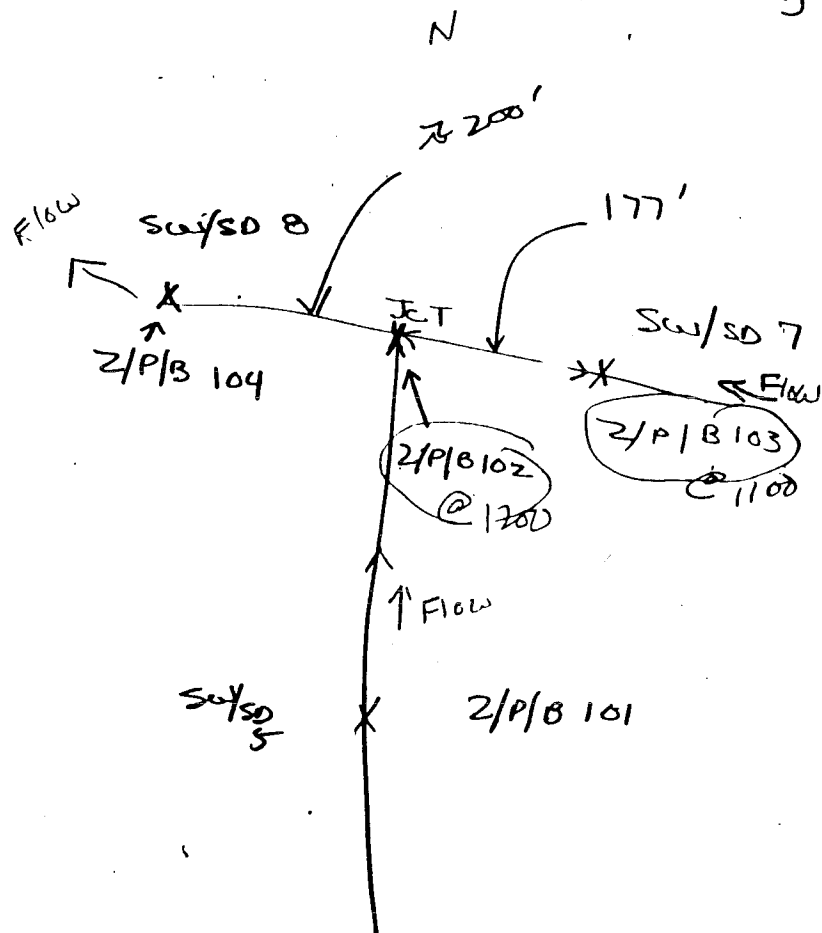 N
≈ 200'
177'
Flow
SW/SD 8
JCT
SW/SD 7
Flow
Z/P/B 104
Z/P/B 102
@ 1200
Z/P/B 103
@ 1100
↑ Flow
SW/SD
5
Z/P/B 101